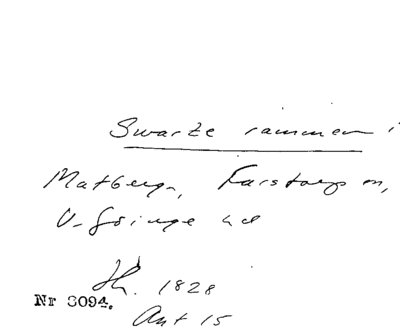 Swarte rammen i
Matberga, Farstorps sn,
V. Göinge hd
Jh. 1828
Nr 3094.
Ant 15